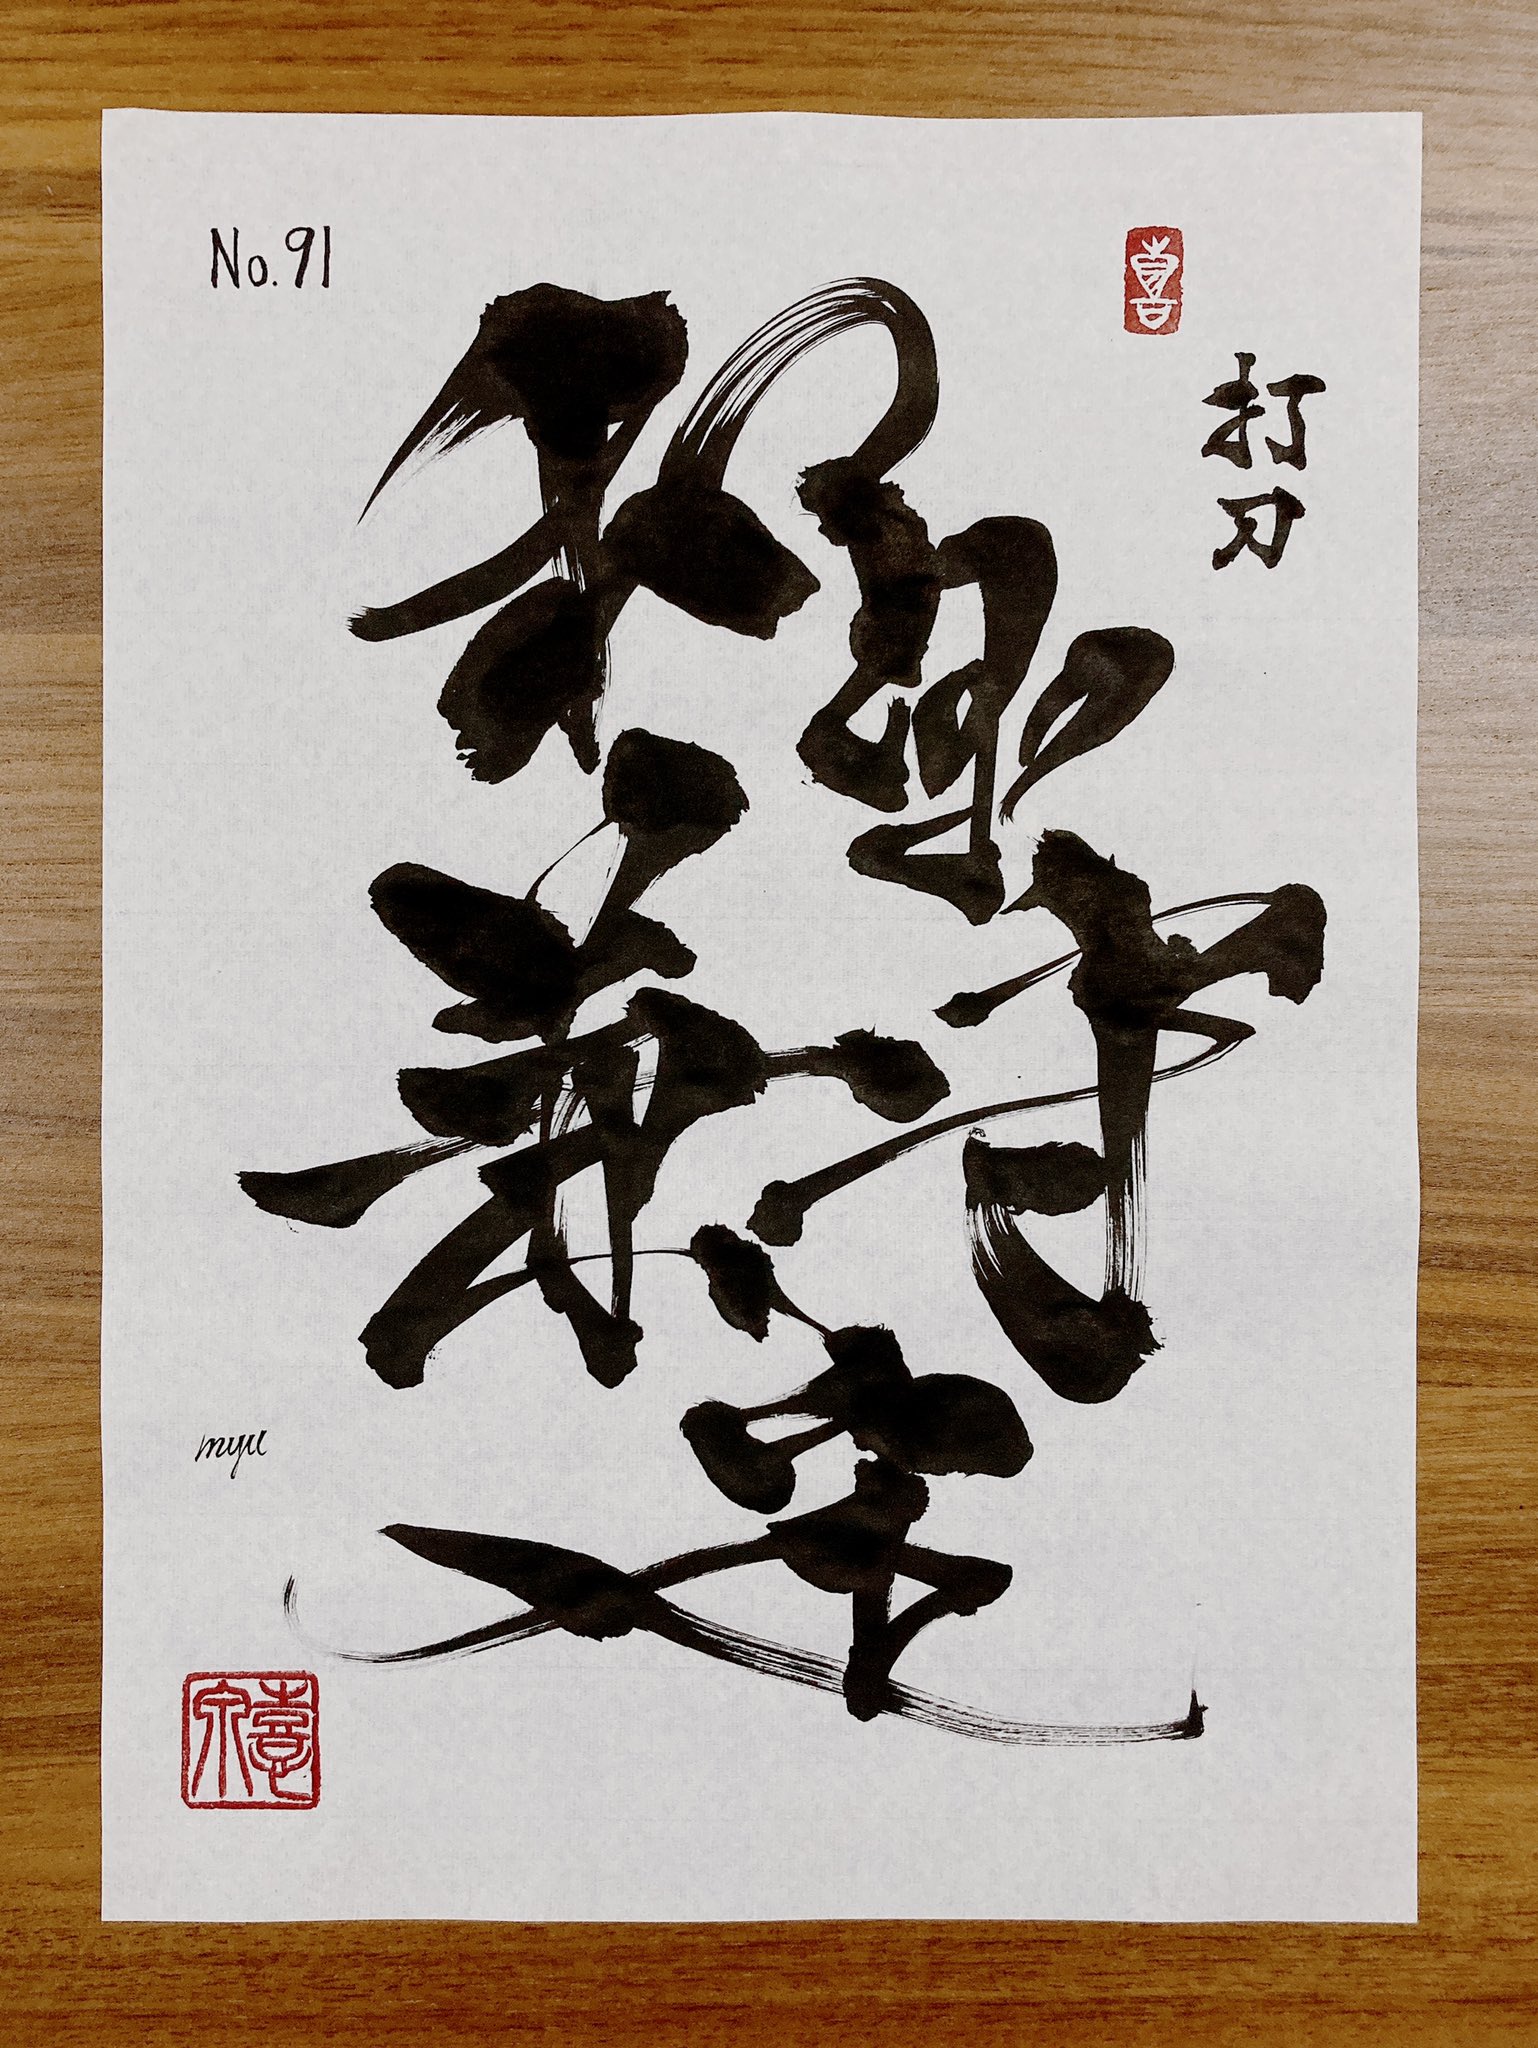 No.91
喜
打刀
和泉守兼定
myu